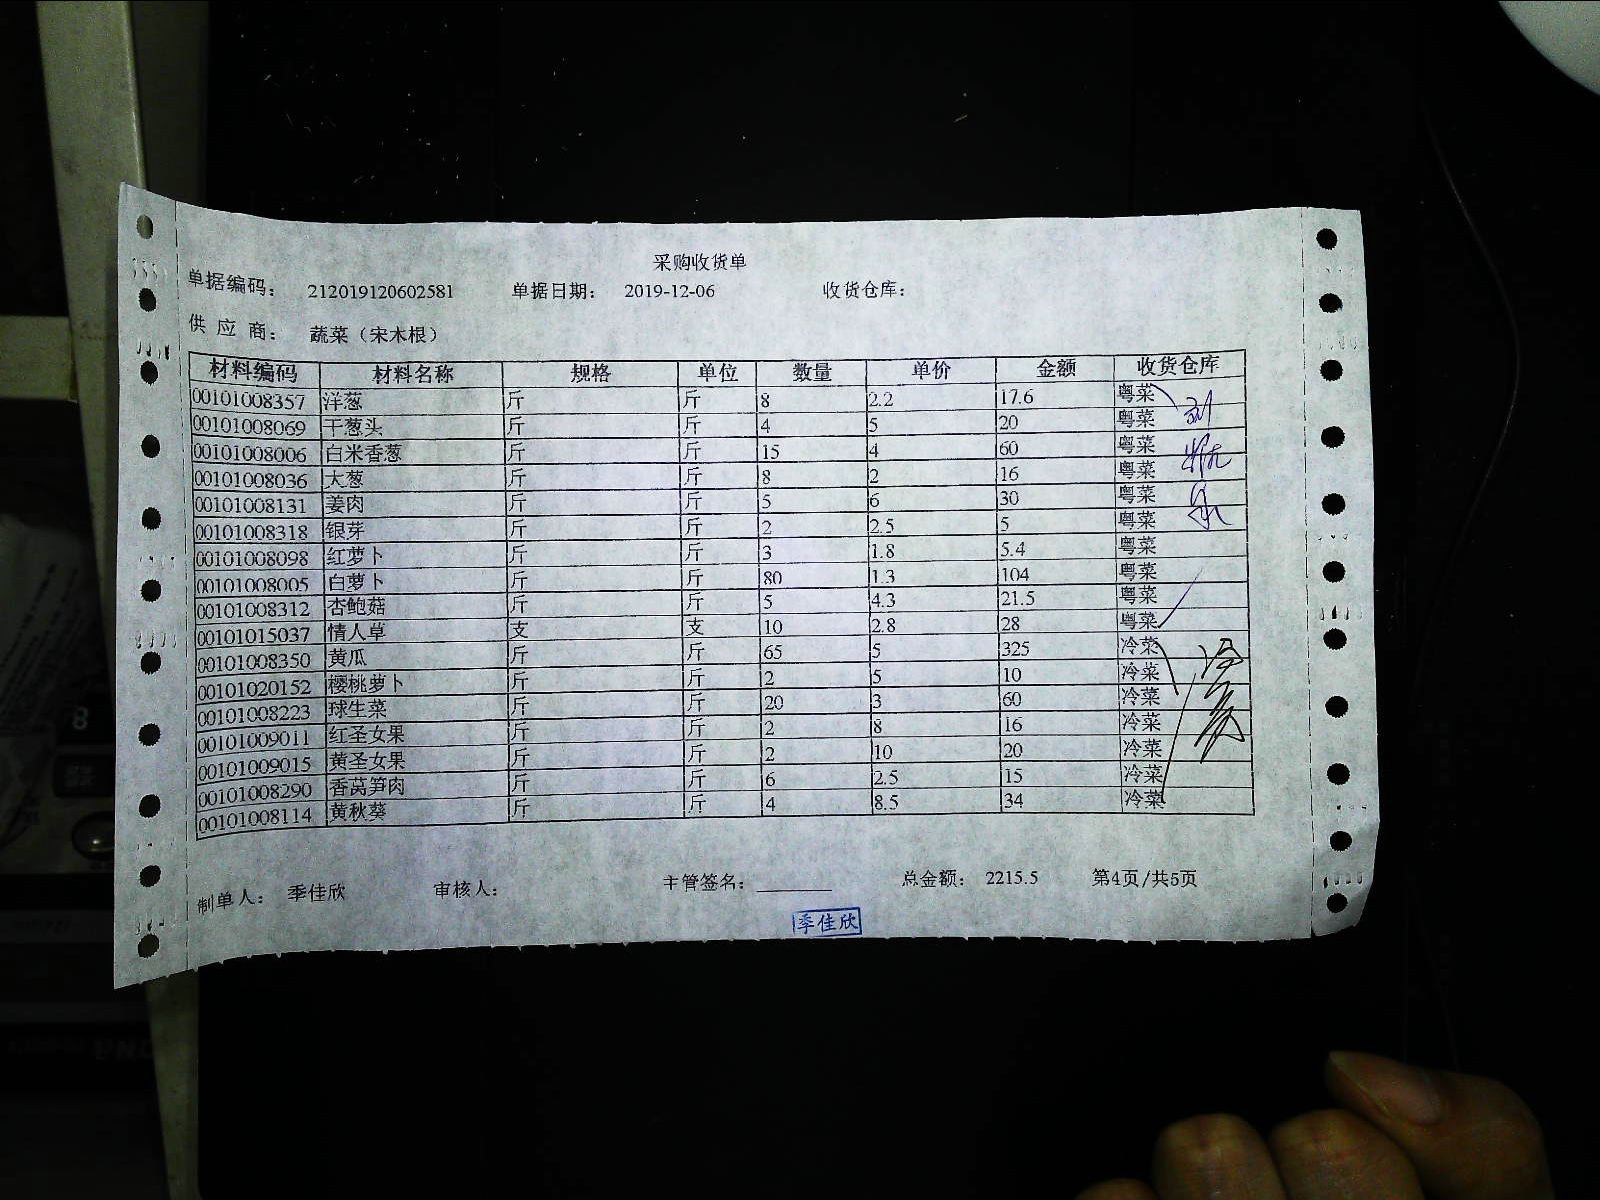 采购收货单
单据编码： 212019120602581 单据日期： 2019-12-06 收货仓库：
供 应 商： 蔬菜（宋木根）
材料编码 材料名称 规格 单位 数量 单价 金额 收货仓库
00101008357 洋葱 斤 斤 8 2.2 17.6 粤菜
00101008069 干葱头 斤 斤 4 5 20 粤菜
00101008006 白米香葱 斤 斤 15 4 60 粤菜
00101008036 大葱 斤 斤 8 2 16 粤菜
00101008131 姜肉 斤 斤 5 6 30 粤菜
00101008318 银芽 斤 斤 2 2.5 5 粤菜
00101008098 红萝卜 斤 斤 3 1.8 5.4 粤菜
00101008005 白萝卜 斤 斤 80 1.3 104 粤菜
00101008312 杏鲍菇 斤 斤 5 4.3 21.5 粤菜
00101015037 情人草 支 支 10 2.8 28 粤菜
00101008350 黄瓜 斤 斤 65 5 325 冷菜
00101020152 樱桃萝卜 斤 斤 2 5 10 冷菜
00101008223 球生菜 斤 斤 20 3 60 冷菜
00101009011 红圣女果 斤 斤 2 8 16 冷菜
00101009015 黄圣女果 斤 斤 2 10 20 冷菜
00101008290 香莴笋肉 斤 斤 6 2.5 15 冷菜
00101008114 黄秋葵 斤 斤 4 8.5 34 冷菜
制单人： 季佳欣 审核人： 主管签名： 总金额： 2215.5 第4页/共5页
季佳欣